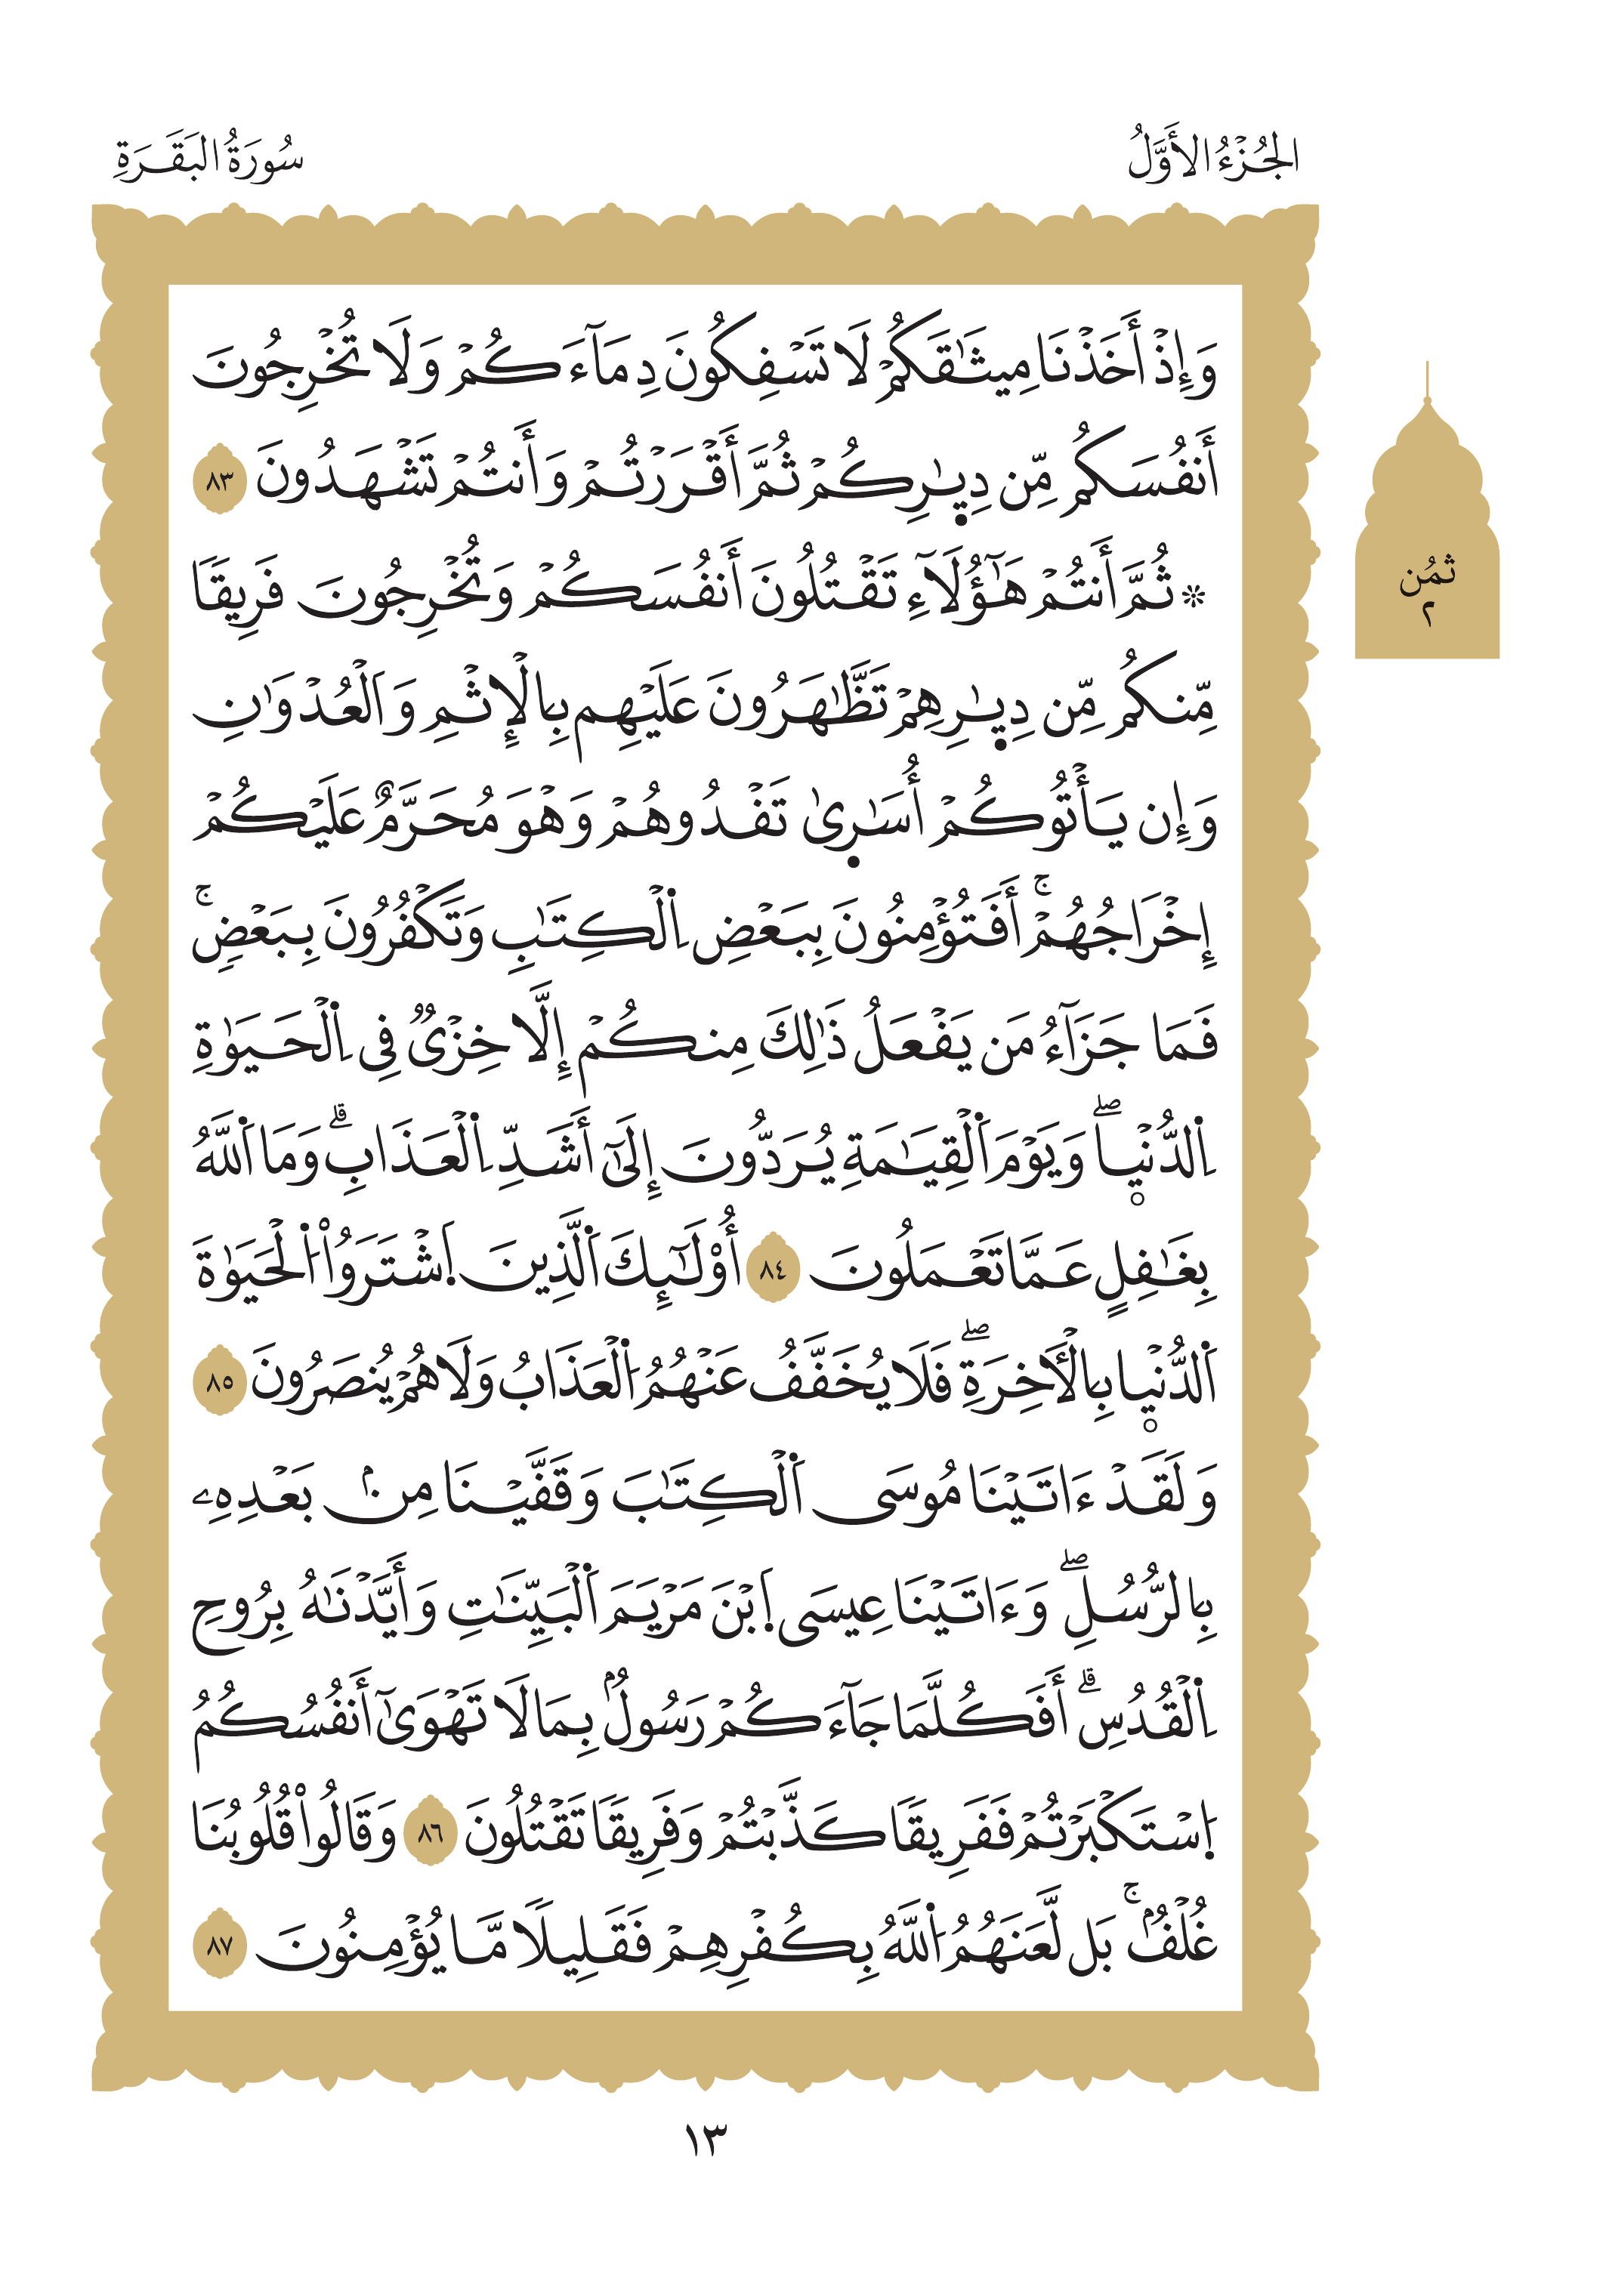 الجُزْءُ الأَوَّلُ
سُورَةُ البَقَرَةِ
وَإِذْ أَخَذْنَا مِيثَٰقَكُمْ لَا تَسْفِكُونَ دِمَآءَكُمْ وَلَا تُخْرِجُونَ
أَنفُسَكُم مِّن دِيٰ۪رِكُمْ ثُمَّ أَقْرَرْتُمْ وَأَنتُمْ تَشْهَدُونَ ٨٣
* ثُمَّ أَنتُمْ هَٰٓؤُلَآءِ تَقْتُلُونَ أَنفُسَكُمْ وَتُخْرِجُونَ فَرِيقٗا
مِّنكُم مِّن دِيٰ۪رِهِمْ تَظَّٰهَرُونَ عَلَيْهِم بِالْإِثْمِ وَالْعُدْوَٰنِ
وَإِن يَأْتُوكُمْ أُسَٰر۪يٰ تَفْدُوهُمْ وَهْوَ مُحَرَّمٌ عَلَيْكُمْ
إِخْرَاجُهُمْۚ أَفَتُؤْمِنُونَ بِبَعْضِ اِ۬لْكِتَٰبِ وَتَكْفُرُونَ بِبَعْضٖۚ
فَمَا جَزَآءُ مَن يَفْعَلُ ذَٰلِكَ مِنكُمْ إِلَّا خِزْيٞ فِي اِ۬لْحَيَوٰةِ
اِ۬لدُّنْي۪اۖ وَيَوْمَ اَ۬لْقِيَٰمَةِ يُرَدُّونَ إِلَىٰٓ أَشَدِّ اِ۬لْعَذَابِۗ وَمَا اَ۬للَّهُ
بِغَٰفِلٍ عَمَّا تَعْمَلُونَ ٨٤ أُوْلَٰٓئِكَ اَ۬لَّذِينَ اَ۪شْتَرَوُاْ اُ۬لْحَيَوٰةَ
اَ۬لدُّنْي۪ا بِالْأَخِرَةِۖ فَلَا يُخَفَّفُ عَنْهُمُ اُ۬لْعَذَابُ وَلَا هُمْ يُنصَرُونَ ٨٥
وَلَقَدْ ءَاتَيْنَا مُوسَى اَ۬لْكِتَٰبَ وَقَفَّيْنَا مِنۢ بَعْدِهِۦ
بِالرُّسُلِۖ وَءَاتَيْنَا عِيسَى اَ۪بْنَ مَرْيَمَ اَ۬لْبَيِّنَٰتِ وَأَيَّدْنَٰهُ بِرُوحِ
اِ۬لْقُدُسِۗ أَفَكُلَّمَا جَآءَكُمْ رَسُولُۢ بِمَا لَا تَهْوَىٰٓ أَنفُسُكُمُ
اُ۪سْتَكْبَرْتُمْ فَفَرِيقٗا كَذَّبْتُمْ وَفَرِيقٗا تَقْتُلُونَ ٨٦ وَقَالُواْ قُلُوبُنَا
غُلْفُۢۚ بَل لَّعَنَهُمُ اُ۬للَّهُ بِكُفْرِهِمْ فَقَلِيلٗا مَّا يُؤْمِنُونَ ٨٧
ثُمُن
٢
١٣